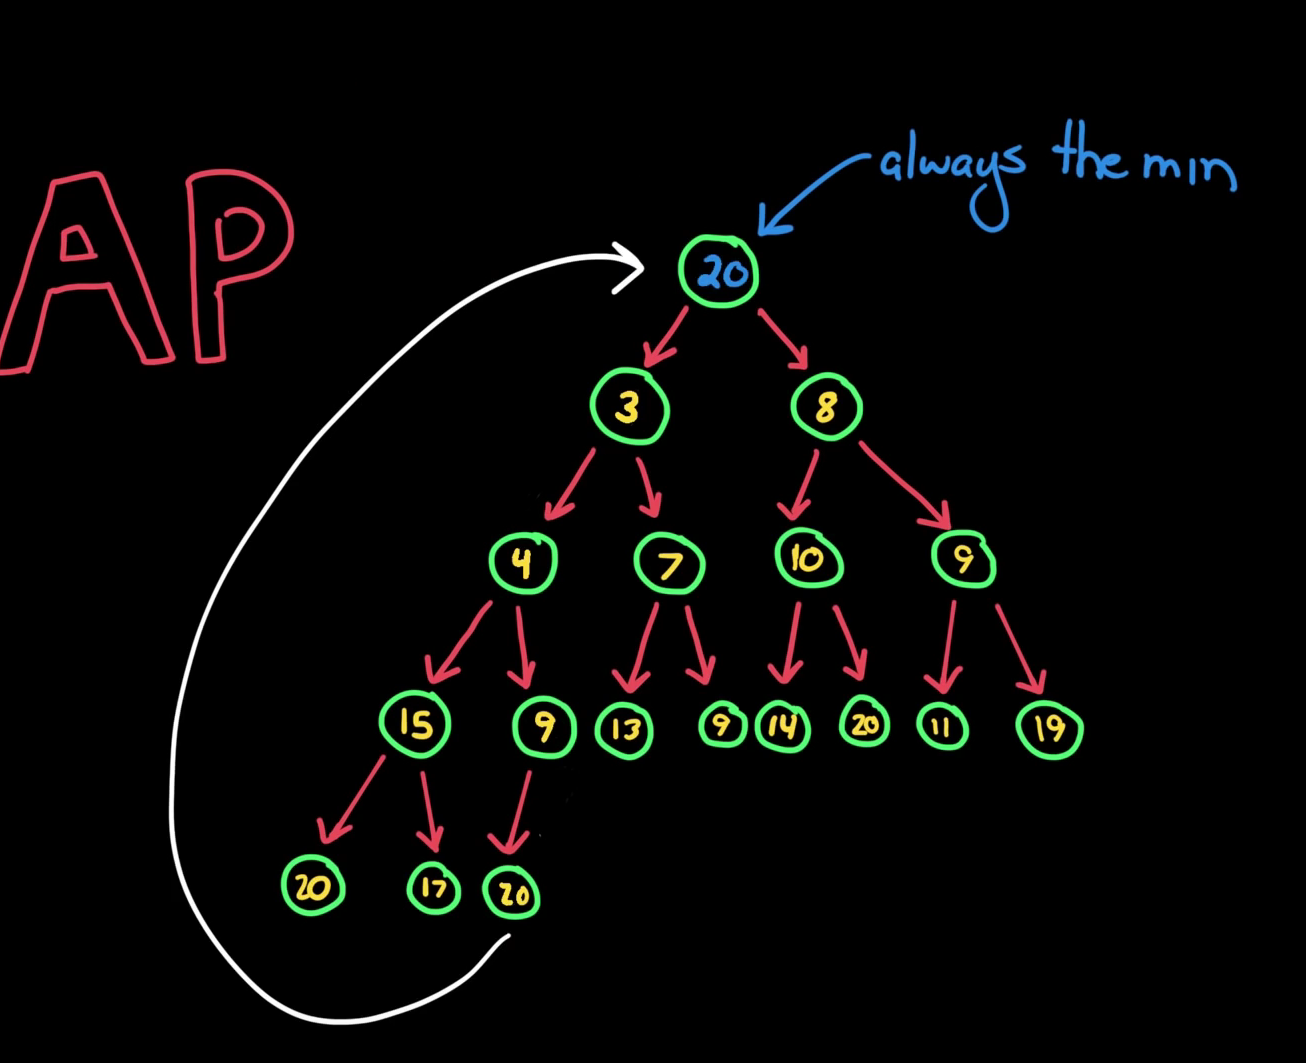 AP
always the min
20
3 8
4 7 10 9
15 9 13 9 14 20 11 19
20 17 20